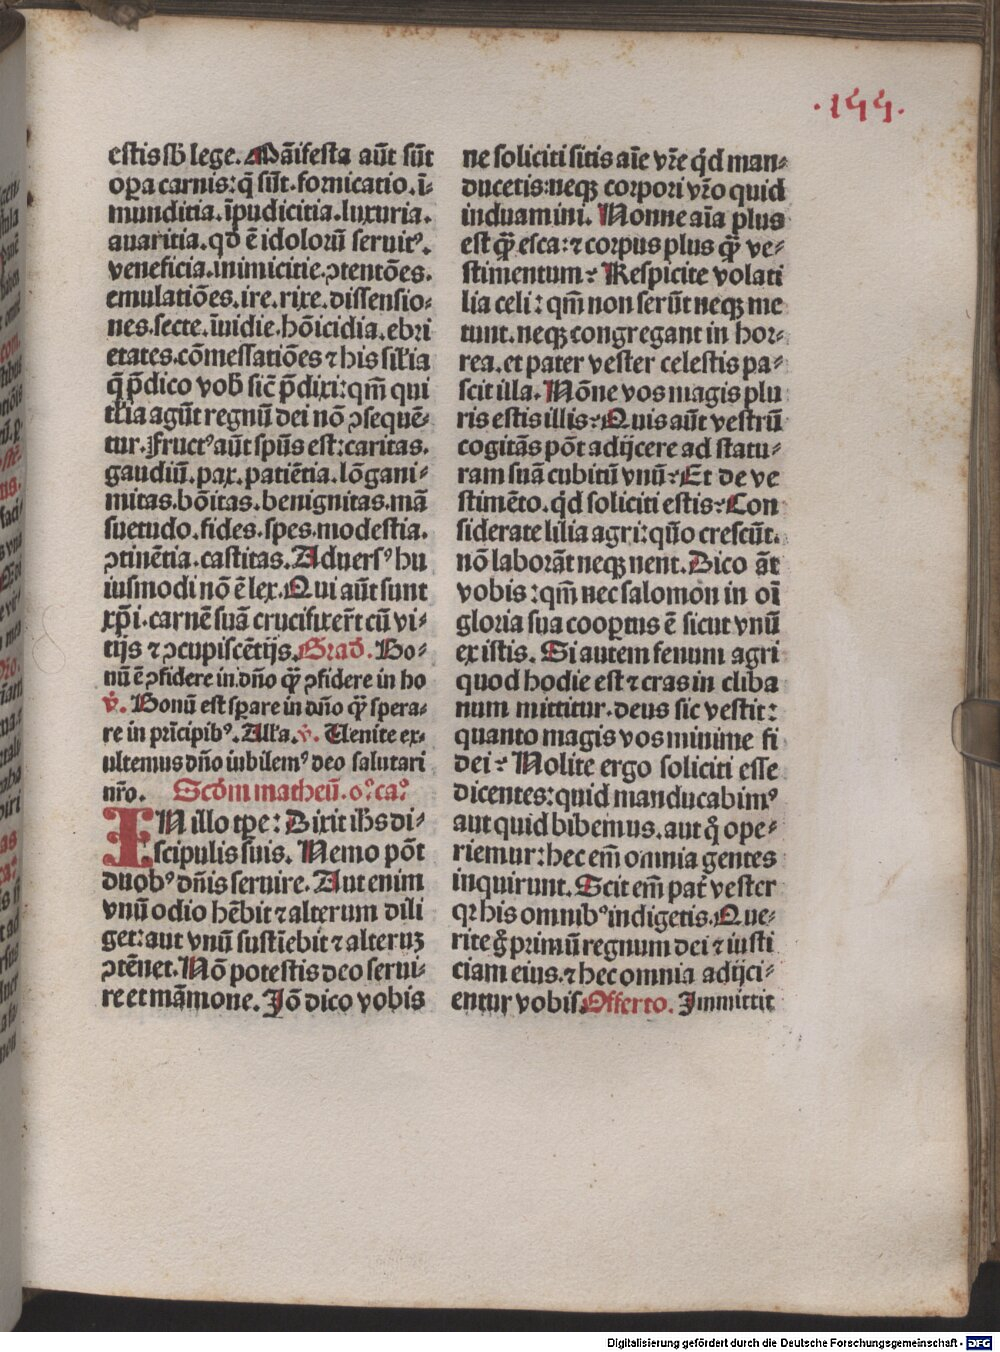 .155.
estis sb̄ lege. Māifesta aūt sūt
oꝑa carnis: q̄ sūt. fornicatio. ī⸗
munditia. īpudicitia. luxuria.
auaritia. qd̄ ē idoloꝝ seruitꝰ.
veneficia. inimicitie. ꝯtentōes.
emulatiōes. ire. rixe. dissensio⸗
nes. secte. īuidie. hōicidia. ebri
etates. cōmessatiōes ⁊ his sil̄ia
q̄ p̄dico vob̄ sic̄ p̄dixi: qm̄ qui
tl̄ia agūt regnū dei nō ꝯsequē⸗
tur. Fructꝰ aūt spūs est: caritas.
gaudiū. pax. patiētia. lōgani⸗
mitas. bōitas. benignitas. mā
suetudo. fides. spes. modestia.
ꝯtinētia. castitas. Aduersꝰ hu
iusmodi nō ē lex. Qui aūt sunt
xp̄i. carnē suā crucifixer̄t cū vi⸗
tijs ⁊ ꝯcupiscētijs. Grad̄. Bo⸗
nū ē ꝯfidere in dn̄o q̄ꝫ ꝯfidere in ho
v̄. Bonū est sꝑare in dn̄o q̄ꝫ spera⸗
re in prīcipibꝰ. All'a. v̄. Uenite ex⸗
ultemus dn̄o iubilemꝰ deo salutari
nr̄o. Scd̄m matheū. o: ca:
IN illo tꝑe: Dixit ihs̄ di⸗
scipulis suis. Nemo pōt
duobꝰ dn̄is seruire. Aut enim
vnū odio hēbit ⁊ alterum dili
get: aut vnū sustīebit ⁊ alteruꝫ
ꝯtēnet. Nō potestis deo serui⸗
re et māmone. Iō dico vobis
ne soliciti sitis aīe vr̄e qd̄ man⸗
ducetis: neqꝫ corpori vr̄o quid
induamini. Nonne aīa plus
est q̄ꝫ esca: ⁊ corpus plus q̄ꝫ ve⸗
stimentum? Respicite volati
lia celi: qm̄ non serūt neqꝫ me
tunt. neqꝫ congregant in hor⸗
rea. et pater vester celestis pa⸗
scit illa. Nōne vos magis plu
ris estis illis? Quis aūt vestrū
cogitās pōt adijcere ad statu⸗
ram suā cubitū vnū? Et de ve
stimēto. qd̄ soliciti estis? Con
siderate lilia agri: quō crescūt.
nō laborāt neqꝫ nent. Dico āt
vobis: qm̄ nec salomon in oī
gloria sua cooꝑtus ē sicut vnū
ex istis. Si autem fenum agri
quod hodie est ⁊ cras in cliba
num mittitur. deus sic vestit:
quanto magis vos minime fi
dei? Nolite ergo soliciti esse
dicentes: quid manducabimꝰ
aut quid bibemus. aut q̊ ope⸗
riemur: hec em̄ omnia gentes
inquirunt. Scit em̄ pat̄ vester
qꝛ his omnibꝰ indigetis. Que⸗
rite g̊ primū regnum dei ⁊ iusti
ciam eius. ⁊ hec omnia adijci⸗
entur vobis. Offerto. Immittit
Digitalisierung gefördert durch die Deutsche Forschungsgemeinschaft - DFG